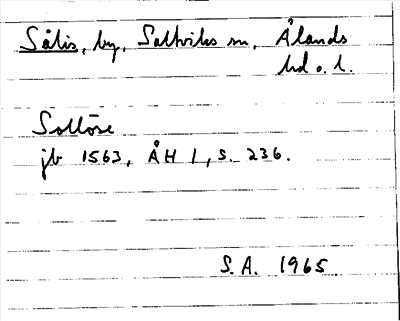 Sålis, by, Saltviks sn, Ålands
hd o. l.
Sollöse
jb 1563, ÅH 1, s. 236.
S.A. 1965